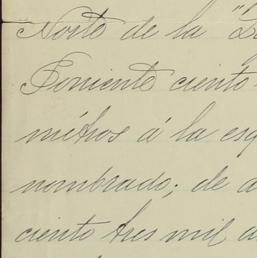 Norte de la "
Poniente ciento
metros á la esq
nombrado; de a
ciento tres mil d